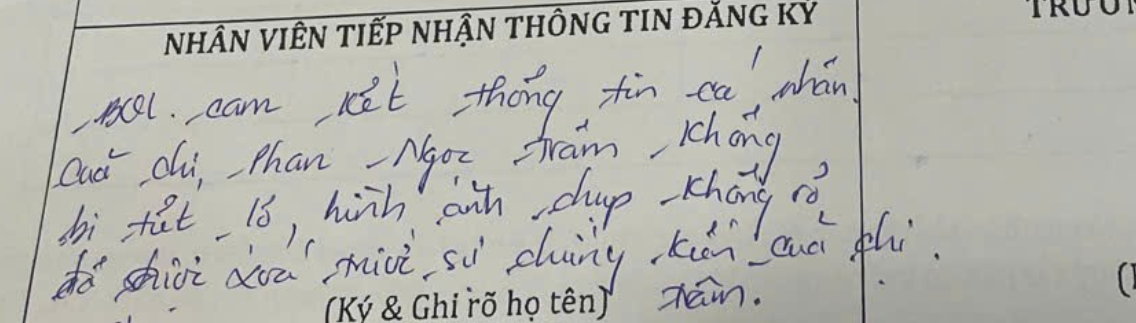 NHÂN VIÊN TIẾP NHẬN THÔNG TIN ĐĂNG KÝ
BQL. cam kết thông tin cá nhân
Của chị, Phan Ngọc Trâm không
bị tiết lộ, hình ảnh chụp không rõ
đã được xoá trước sự chứng kiến của chị
(Ký & Ghi rõ họ tên) Trâm.